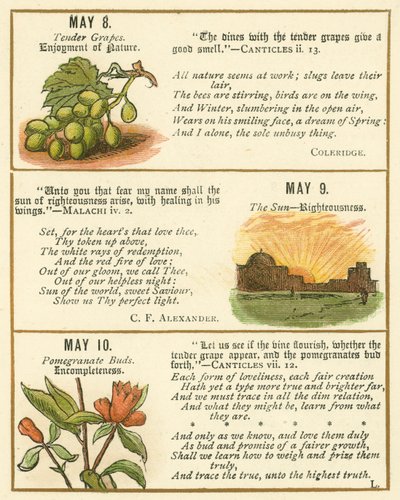 MAY 8.
Tender Grapes.
Enjoyment of Nature.
"The vines with the tender grapes give a
good smell."—CANTICLES ii. 13.
All nature seems at work; slugs leave their
lair,
The bees are stirring, birds are on the wing,
And Winter, slumbering in the open air,
Wears on his smiling face, a dream of Spring:
And I alone, the sole unbusy thing.
COLERIDGE.
"Unto you that fear my name shall the
sun of righteousness arise, with healing in his
wings."—MALACHI iv. 2.
Set, for the heart's that love thee,
Thy token up above,
The white rays of redemption,
And the red fire of love;
Out of our gloom, we call Thee,
Out of our helpless night:
Sun of the world, sweet Saviour,
Show us Thy perfect light.
C. F. ALEXANDER.
MAY 9.
The Sun—Righteousness.
MAY 10.
Pomegranate Buds.
Encompleteness.
"Let us see if the vine flourish, whether the
tender grape appear, and the pomegranates bud
forth,"—CANTICLES vii. 12.
Each form of loveliness, each fair creation
Hath yet a type more true and brighter far,
And we must trace in all the dim relation,
And what they might be, learn from what
they are.
* * * * * *
And only as we know, aud love them duly
As bud and promise of a fairer growth,
Shall we learn how to weigh and prize them
truly,
And trace the true, unto the highest truth.
L.